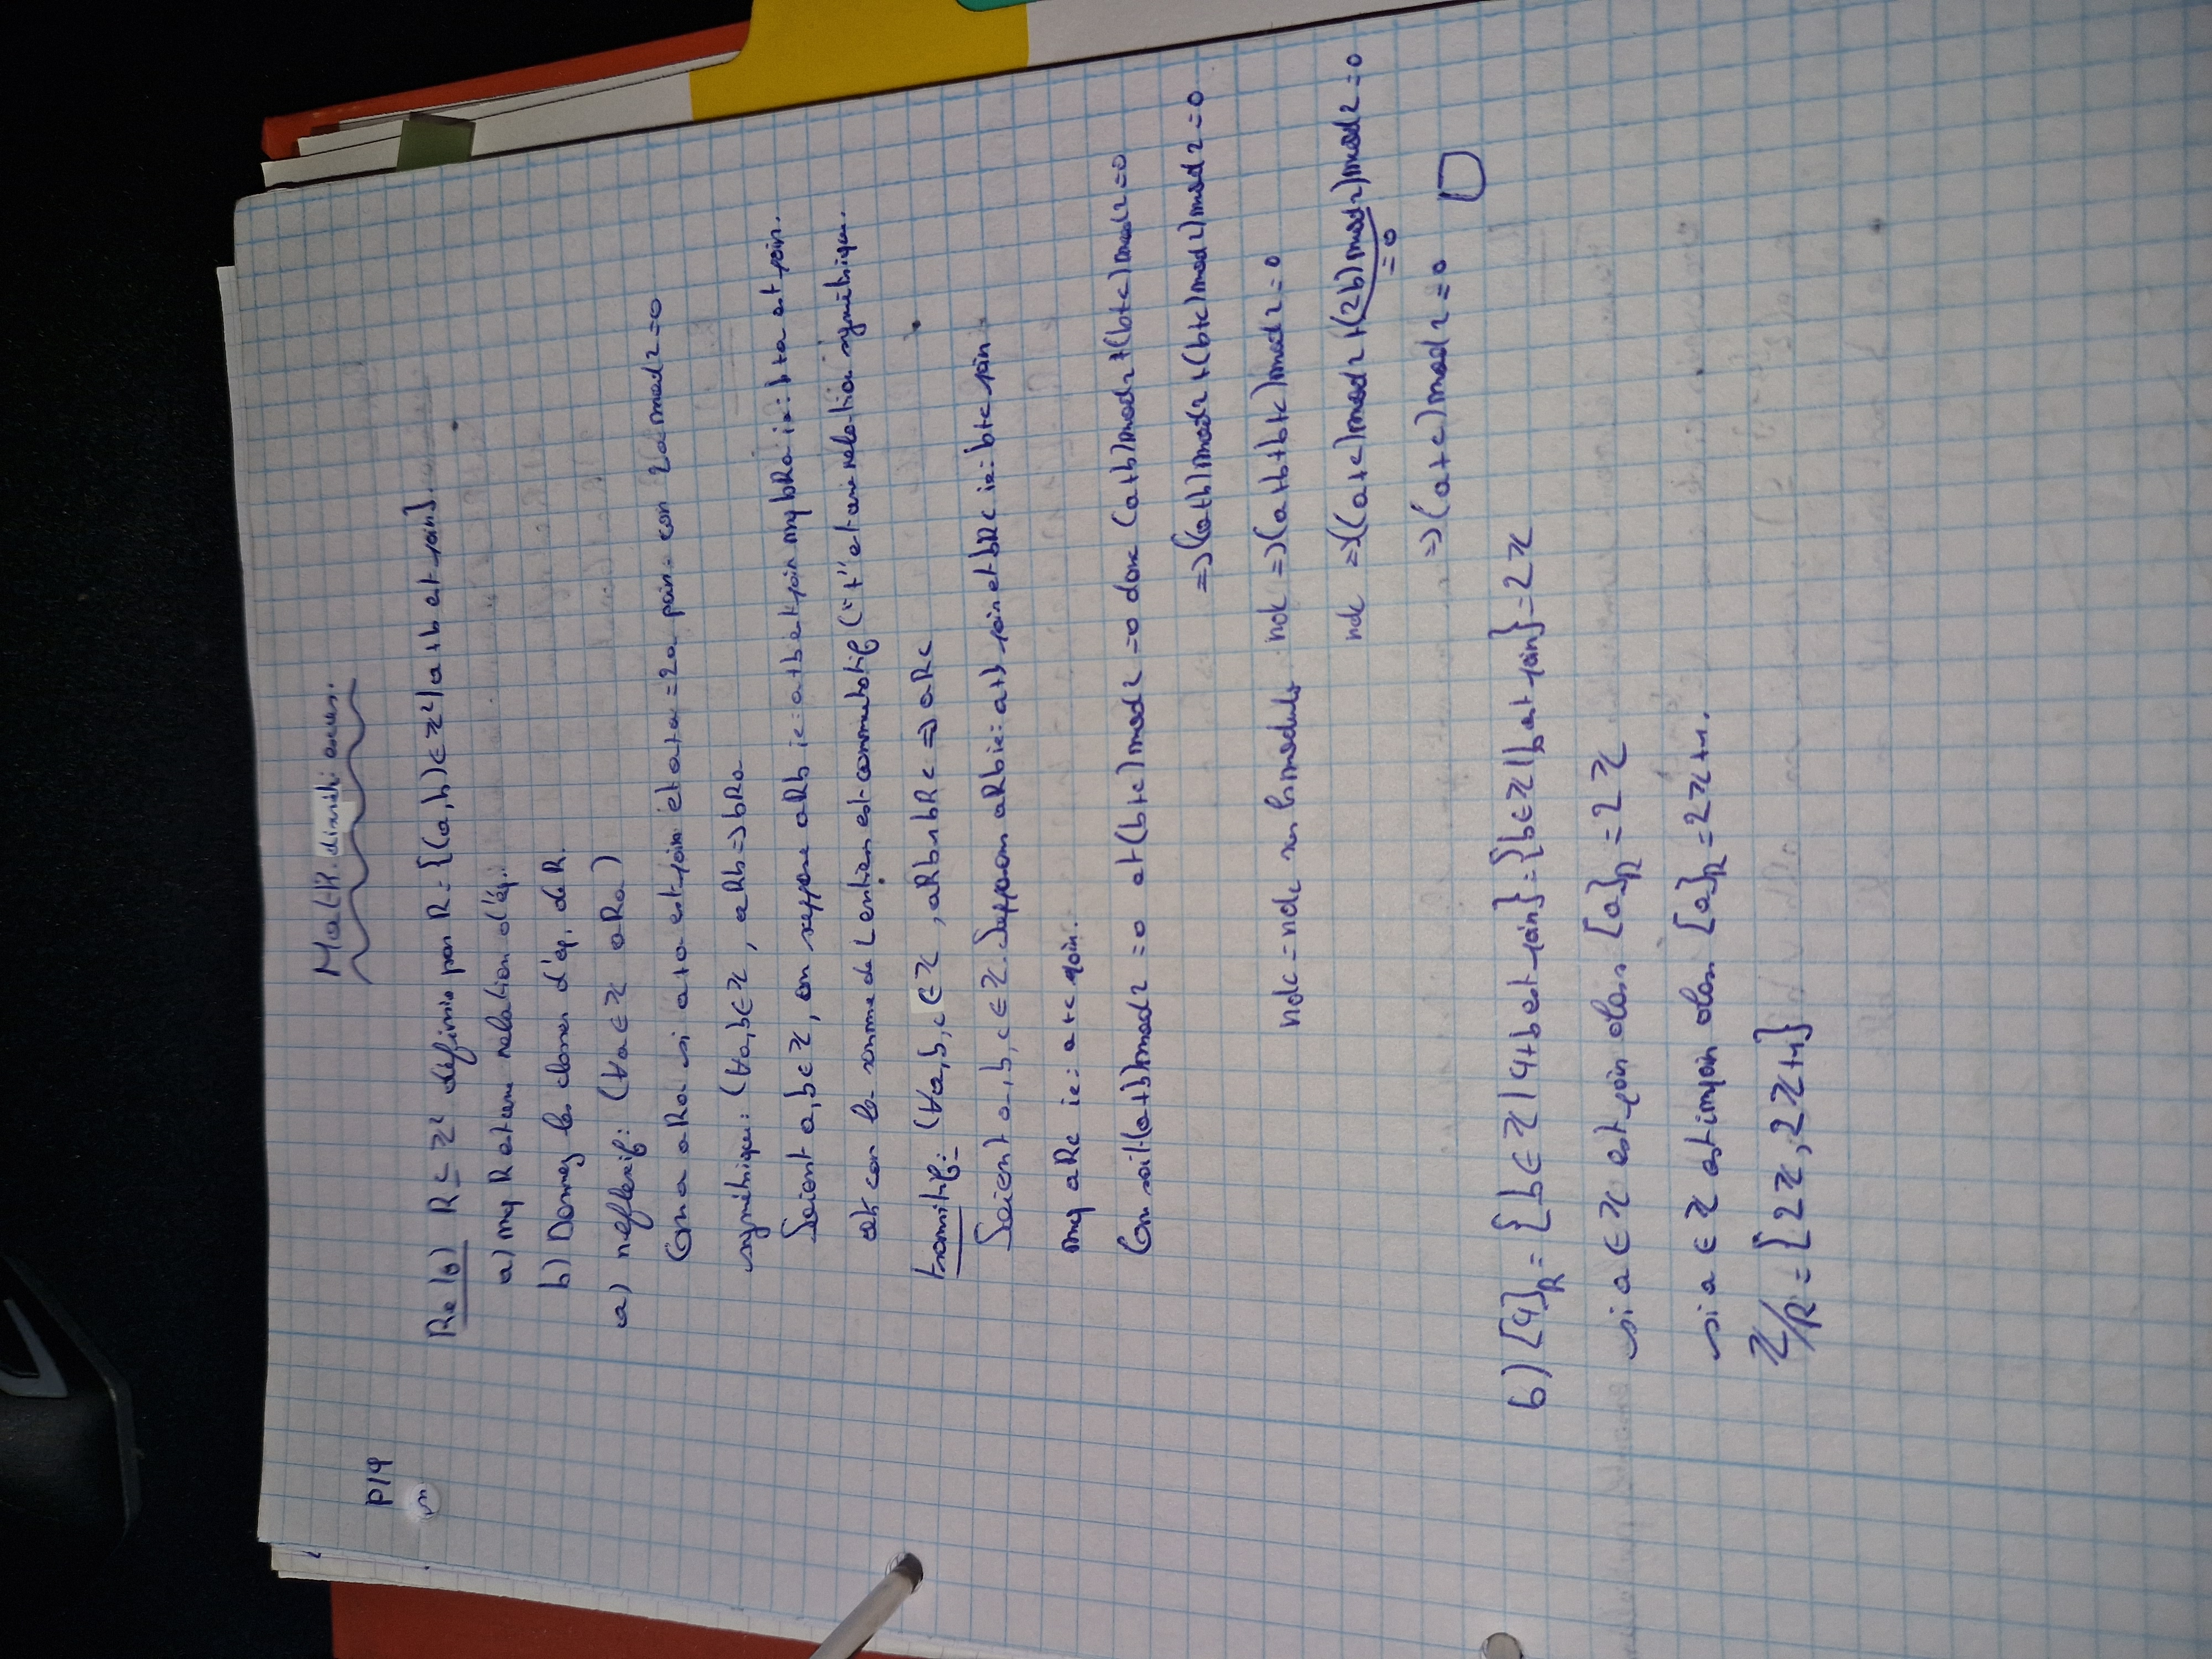 Math. discrètes exercices.
P19
Re 10) R ⊆ ℤ² définie par R = {(a,b) ∈ ℤ² | a+b est pair}.
a) mq R est une relation d'éq.
b) Donnez les classes d'éq. de R.
a) réflexif: (∀a∈ℤ aRa)
On a aRa si a+a est pair et a+a = 2a pair car 2a mod 2 = 0
symétrique: (∀a,b∈ℤ, aRb => bRa
Soient a,b∈ℤ, on suppose aRb ie: a+b est pair mq bRa ie: b+a est pair.
ok car la somme de 2 entiers est commutatif ("+" est une relation symétrique.
transitif: (∀a,b,c∈ℤ, aRb∧bRc => aRc
Soient a,b,c∈ℤ. Supposons aRb ie: a+b pair et bRc ie: b+c pair
mq aRc ie: a+c pair.
On sait (a+b)mod2 = 0 et (b+c)mod2 = 0 donc (a+b)mod2 + (b+c)mod2 = 0
=> ((a+b)mod2 + (b+c)mod2)mod2 = 0
rdc = rdc sur les modulo rdc => (a+b+b+c)mod2 = 0
rdc => ((a+c)mod2 + (2b)mod2)mod2 = 0
= 0
=> (a+c)mod2 = 0 □
b) [4]_R = {b∈ℤ | 4+b est pair} = {b∈ℤ | b est pair} = 2ℤ
si a∈ℤ est pair alors [a]_R = 2ℤ
si a∈ℤ est impair alors [a]_R = 2ℤ+1.
ℤ/R = {2ℤ, 2ℤ+1}